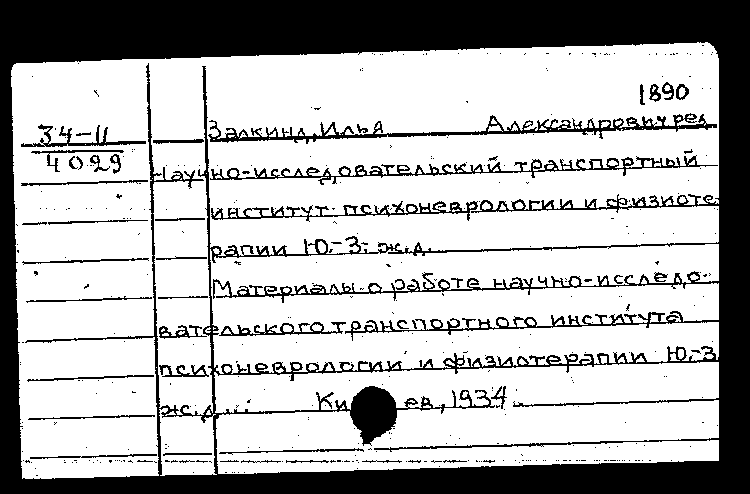 1890
34-II Залкинд, Илья Александрович ред.
4029
Научно-исследовательский транспортный
институт психоневрологии и физиоте-
рапии Ю.-З. ж.д.
Материалы о работе научно-исследо-
вательского транспортного института
психоневрологии и физиотерапии Ю.-З.
ж.д... Ки ев, 1934.